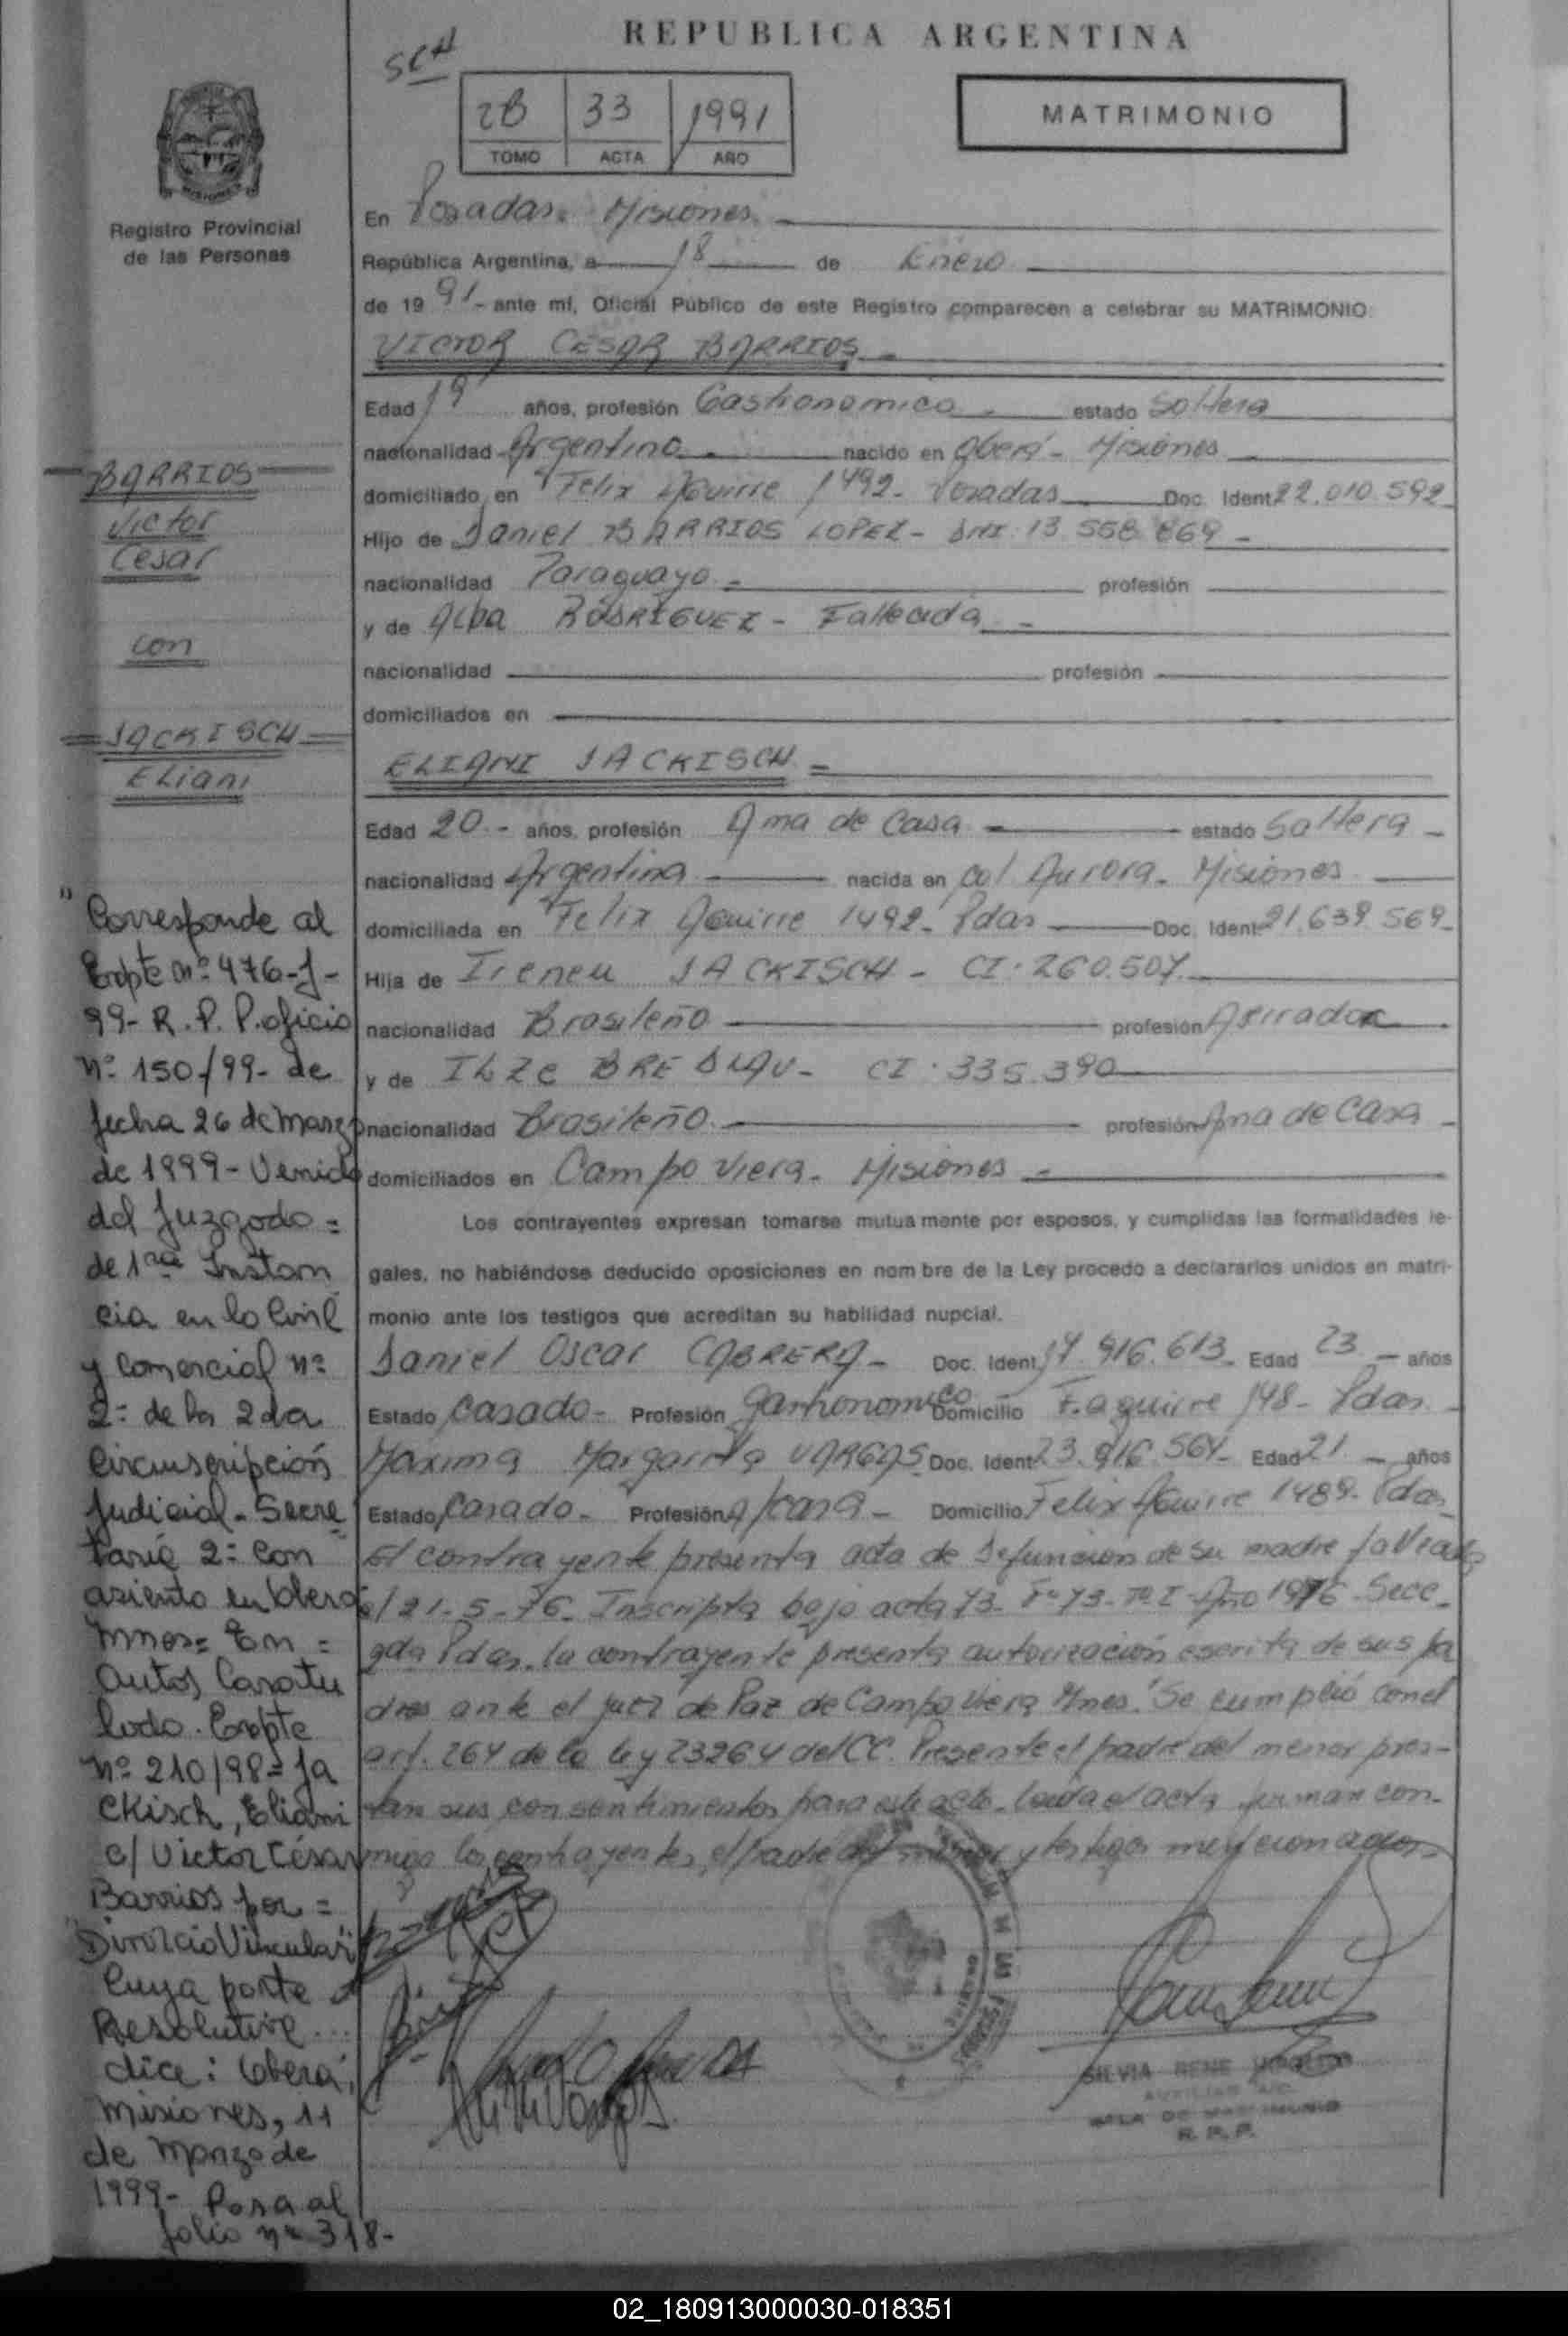 REPUBLICA ARGENTINA
SCH
2B 33 1991
TOMO ACTA AÑO
MATRIMONIO
Registro Provincial
de las Personas
En Posadas. Misiones.
República Argentina, a 18 de Enero
de 1991- ante mí, Oficial Público de este Registro comparecen a celebrar su MATRIMONIO:
VICTOR CESAR BARRIOS
Edad 19 años, profesión Gastronomico estado Soltero
nacionalidad Argentino nacido en Oberá - Misiones
domiciliado en Felix Aguirre 1492- Posadas Doc. Ident 22.010.592
Hijo de Daniel BARRIOS LOPEZ - DNI. 13.558.869 -
nacionalidad Paraguayo profesión
y de Alba RODRIGUEZ - Fallecida -
nacionalidad profesión
domiciliados en
ELIANI JACKISCH
Edad 20 - años, profesión Ama de Casa estado Soltera -
nacionalidad Argentina nacida en Col Aurora. Misiones
domiciliada en Felix Aguirre 1492- Pdas Doc. Ident 21.639.569-
Hija de Ireneu JACKISCH - CI. 260.507.
nacionalidad Brasileño profesión Aserrador
y de ILZE BREDLAU - CI. 335.390
nacionalidad Brasileño profesión Ama de Casa -
domiciliados en Campo Viera. Misiones
Los contrayentes expresan tomarse mutuamente por esposos, y cumplidas las formalidades le-
gales, no habiéndose deducido oposiciones en nombre de la Ley procedo a declararlos unidos en matri-
monio ante los testigos que acreditan su habilidad nupcial.
Daniel Oscar CABRERA - Doc. Ident 17.916.613. Edad 23 - años
Estado Casado - Profesión gastronomico Domicilio F. aguirre 148- Pdas.
Maxima Margarita VARGAS Doc. Ident 23.916.564- Edad 21 - años
Estado Casado - Profesión A/casa - Domicilio Felix Aguirre 1489- Pdas
El contrayente presenta acta de defuncion de su madre
el 21-5-76. Inscripta bajo acta 73- Fº 73- Tº I - Año 1976- Secc.
2da Pdas. la contrayente presenta autorización escrita de sus pa
dres ante el Juez de Paz de Campo Viera Mnes. Se cumplió con el
art. 264 de la ley 23264 del CC. Presente el padre del menor pres-
tan sus consentimientos para este acto. Leida el acta firman con-
migo los contrayentes, el padre del menor y testigos mencionados
SILVIA RENE
SALA DE MATRIMONIO
R. P. P.
BARRIOS
Victor
Cesar
con
JACKISCH
Eliani
"Corresponde al
Expte nº 476-J-
99- R.P.P. oficio
nº 150/99- de
fecha 26 de Marzo
de 1999- Venido
del Juzgado =
de 1ra Instan
cia en lo Civil
y Comercial nº
2- de la 2da
Circunscripción
Judicial - Secre
taria 2- Con
asiento en Oberá
Mnes= En =
Autos Caratu
lado. Expte
nº 210/98= Ja
ckisch, Eliani
c/ Victor César
Barrios por =
"Divorcio Vincular"
Cuya parte
Resolutiva...
dice: Oberá,
Misiones, 11
de Marzo de
1999- Pasa al
folio nº 318-
02_180913000030-018351